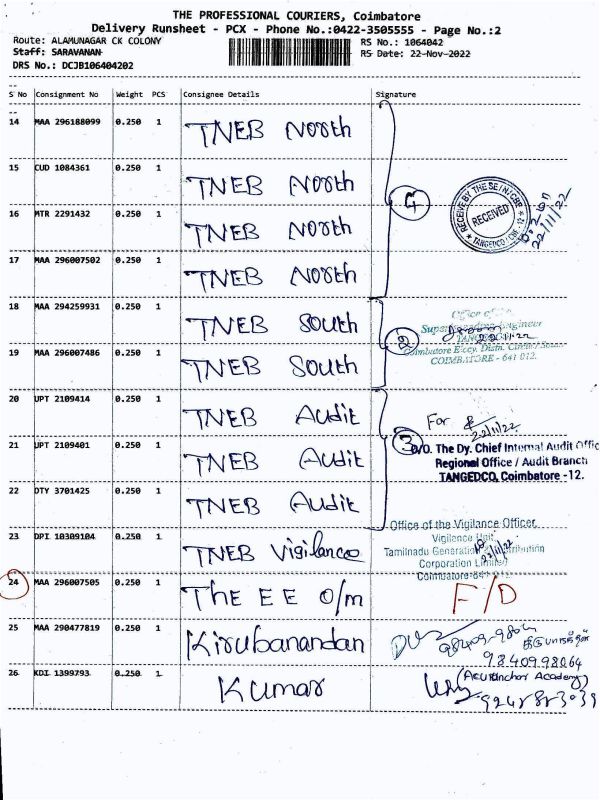 THE PROFESSIONAL COURIERS, Coimbatore
Delivery Runsheet - PCX - Phone No.:0422-3505555 - Page No.:2
Route: ALAMUNAGAR CK COLONY RS No.: 1064042
Staff: SARAVANAN RS Date: 22-Nov-2022
DRS No.: DCJB106404202
S No Consignment No Weight PCS Consignee Details Signature
14 MAA 296188099 0.250 1 TNEB North
15 CUD 1084361 0.250 1 TNEB North
16 MTR 2291432 0.250 1 TNEB North
4
RECEIVE BY THE SE/N/CBE
RECEIVED
TANGEDCO / CBE - 12
22/11/22
17 MAA 296007502 0.250 1 TNEB North
18 MAA 294259931 0.250 1 TNEB South
2
Office of
Superintending Engineer
TANGEDCO
22.11.22
19 MAA 296007486 0.250 1 TNEB South
Coimbatore Elecy. Distn. Circle / South
COIMBATORE - 641 012.
20 UPT 2109414 0.250 1 TNEB Audit
For
22/11/22
21 UPT 2109401 0.250 1 TNEB Audit
3
O/O. The Dy. Chief Internal Audit Offic
Regional Office / Audit Branch
TANGEDCO, Coimbatore -12.
22 DTY 3701425 0.250 1 TNEB Audit
23 DPI 10309104 0.250 1 TNEB Vigilance
Office of the Vigilance Officer,
Vigilance Unit
Tamilnadu Generation Distribution
Corporation Limited
Coimbatore-641 012.
24 MAA 296007505 0.250 1 The EE O/m F/D
25 MAA 290477819 0.250 1 Kirubanandan
9840998064
26 KDI 1399793 0.250 1 Kumar
Academy)